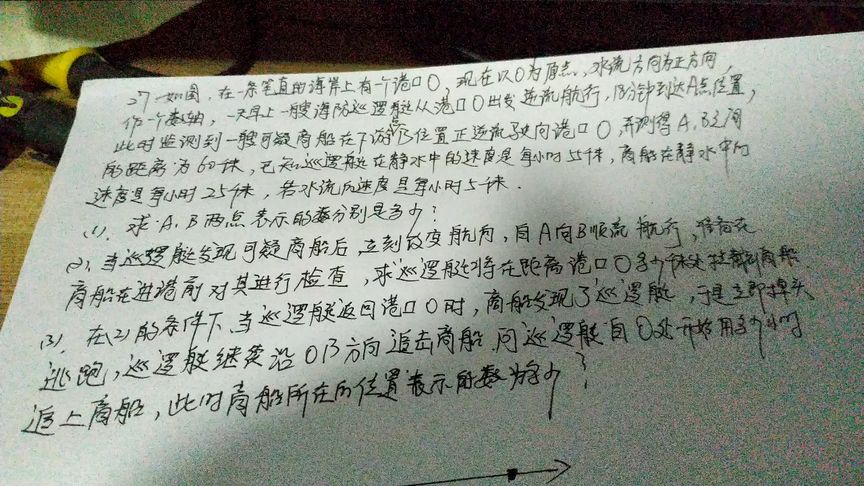 27 如图,在一条笔直的海岸上有一个港口O,现在以O为原点,水流方向为正方向,
作一个数轴,一天早上一艘海防巡逻艇从港口O出发逆流航行,18分钟到达A点位置,
此时监测到一艘可疑商船在下游B位置正逆流驶向港口O,并测得A、B之间
的距离为60千米,已知巡逻艇在静水中的速度是每小时55千米,商船在静水中的
速度是每小时25千米,若水流的速度是每小时5千米.
(1). 求A、B两点表示的数分别是多少?
(2). 当巡逻艇发现可疑商船后,立刻改变航向,自A向B顺流航行,准备在
商船在进港前对其进行检查,求巡逻艇将在距离港口O多少千米处拦截到商船
(3). 在(2)的条件下,当巡逻艇返回港口O时,商船发现了巡逻艇,于是立即掉头
逃跑,巡逻艇继续沿OB方向追击商船.问巡逻艇自O处开始用多少小时
追上商船,此时商船所在的位置表示的数为多少?